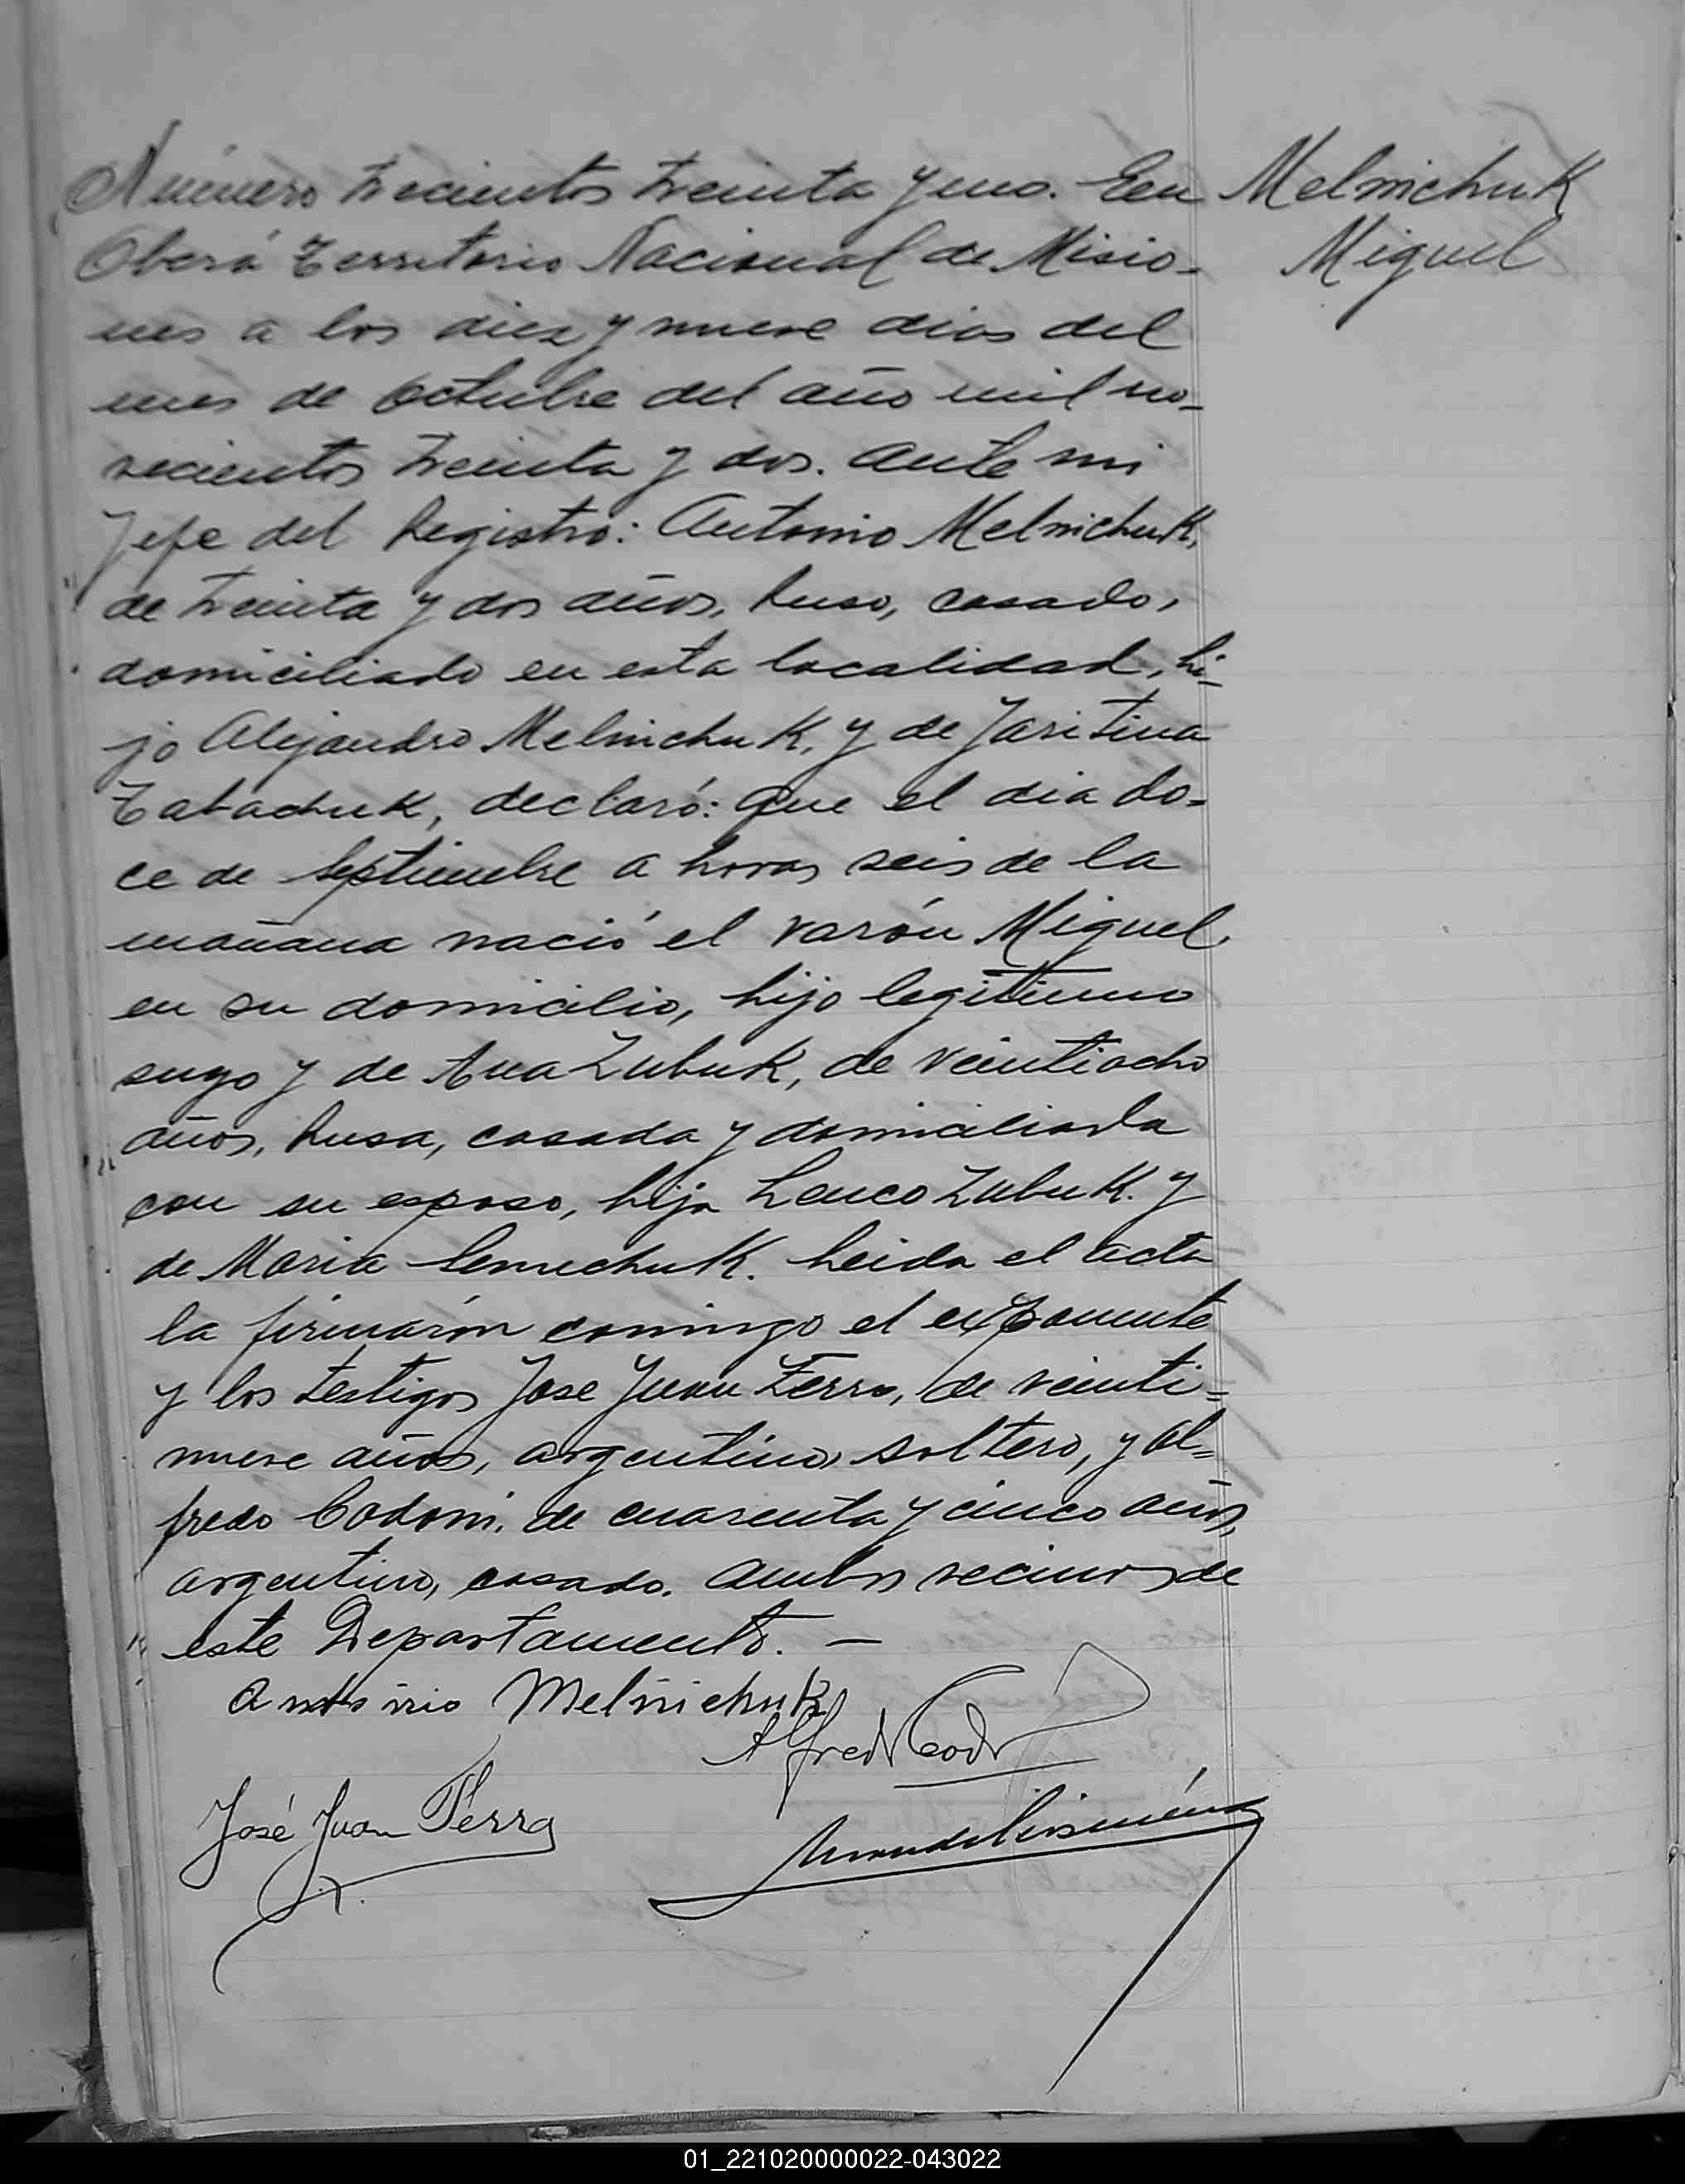 Número trecientos treinta y uno. En
Melnichuk
Oberá Territorio Nacional de Misio-
Miguel
nes a los diez y nueve dias del
mes de Octubre del año mil no-
vecientos treinta y dos. Ante mi
Jefe del Registro: Antonio Melnichuk,
de treinta y dos años, Ruso, casado,
domiciliado en esta localidad, hi-
jo Alejandro Melnichuk, y de Jaritina
Tabachuk, declaró: que el dia do-
ce de Septiembre a horas seis de la
mañana nació el varón Miguel,
en su domicilio, hijo legitimo
suyo y de Ana Zubuk, de veintiocho
años, Rusa, casada y domiciliada
con su esposo, hija Leuco Zubuk. y
de Maria Semechuk. Leida el acta
la firmarón conmigo el exponente
y los testigos Jose Juan Ferra, de veinti-
nueve años, argentino, soltero, y Al-
fredo Codoni, de cuarenta y cinco años,
argentino, casado. Ambos vecinos de
este Departamento. —
Antonio Melnichuk
Alfredo
José Juan Ferra
01_221020000022-043022